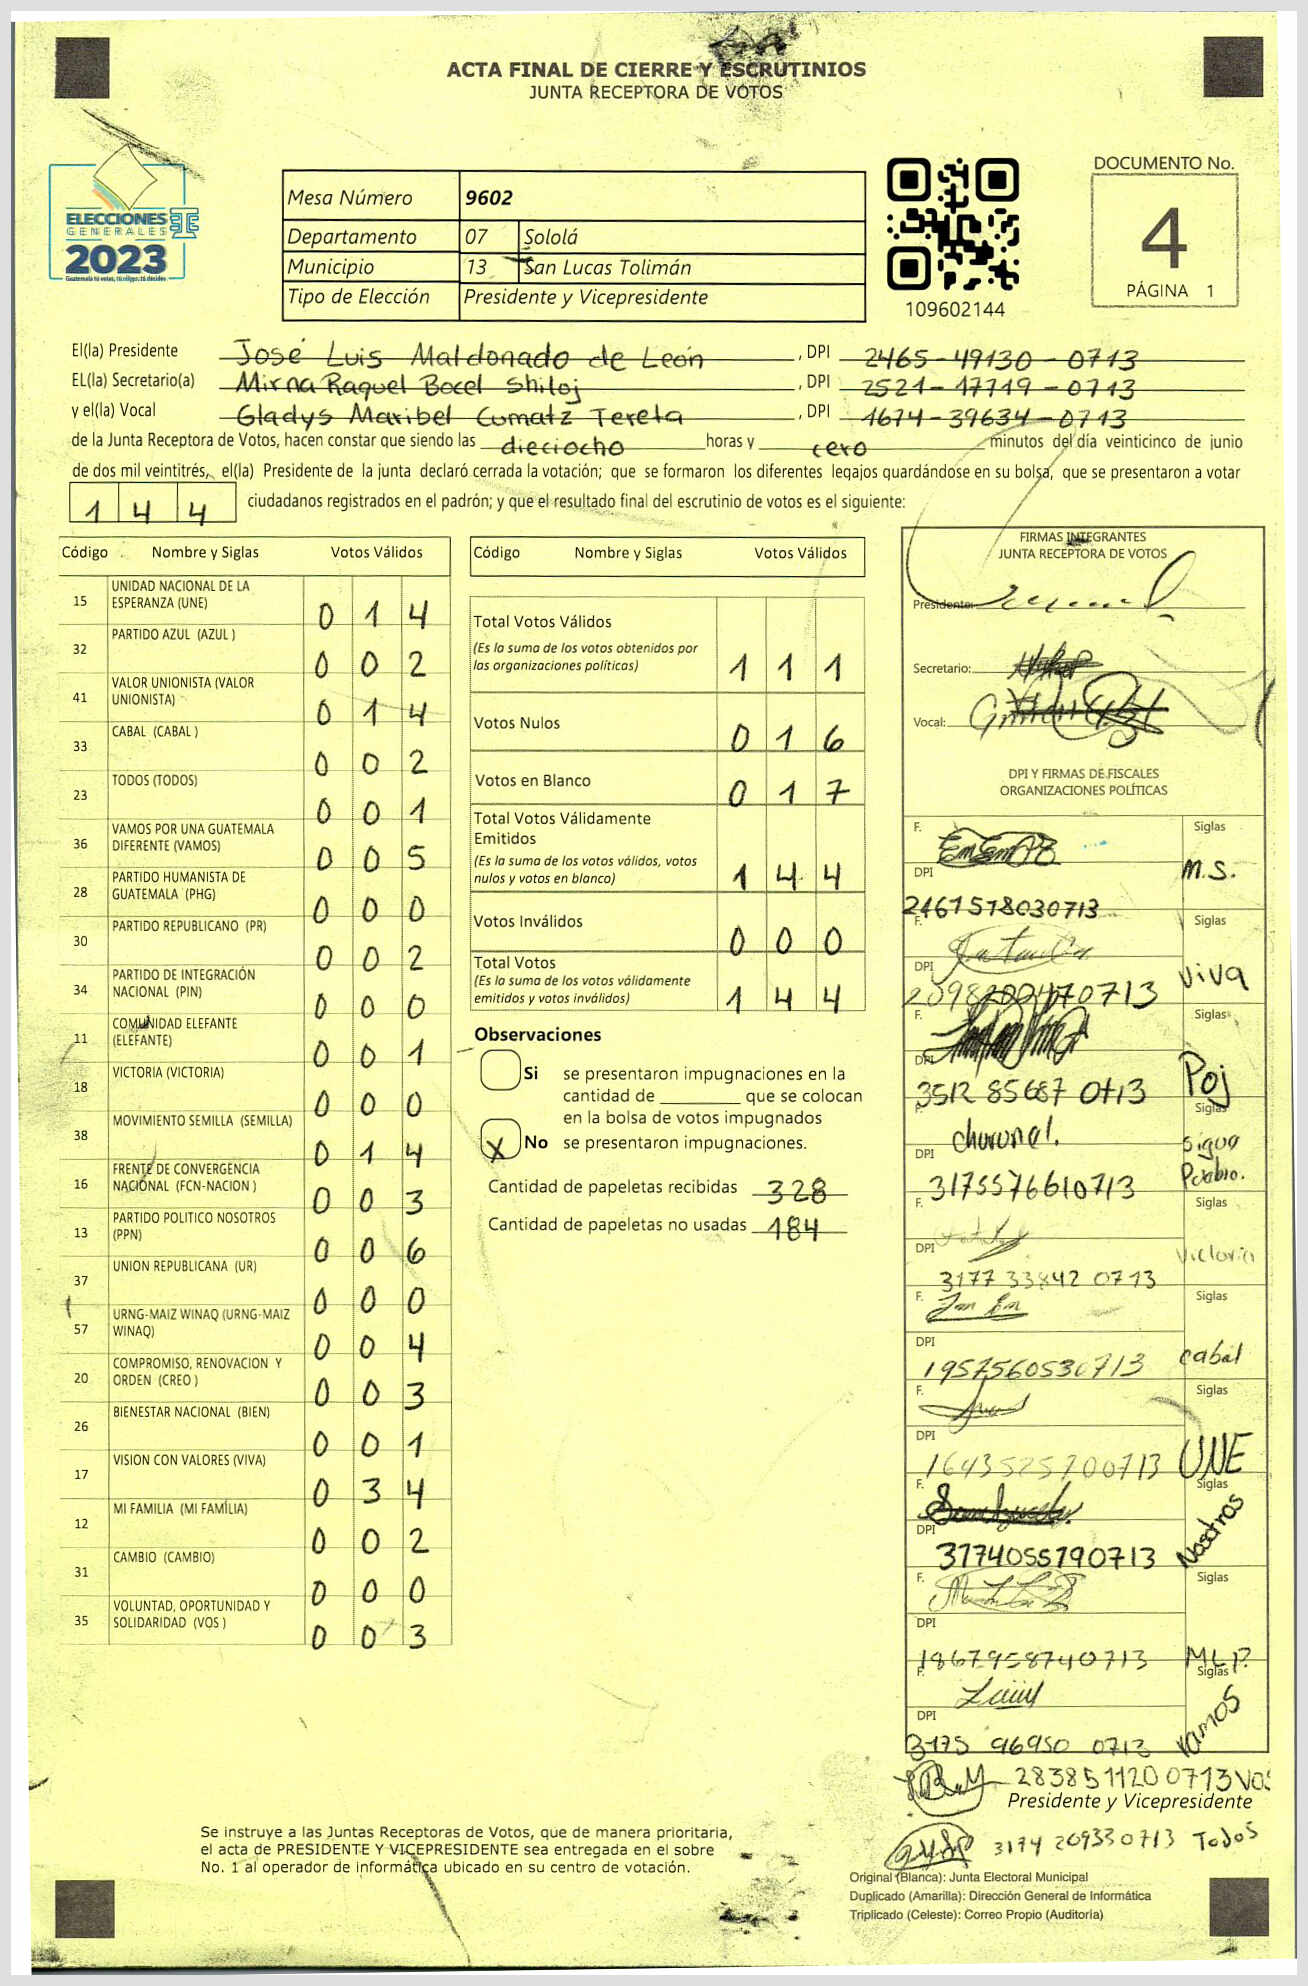 ACTA FINAL DE CIERRE Y ESCRUTINIOS
JUNTA RECEPTORA DE VOTOS
ELECCIONES
GENERALES
2023
Guatemala tú votas, tú eliges, tú decides
Mesa Número 9602
Departamento 07 Sololá
Municipio 13 San Lucas Tolimán
Tipo de Elección Presidente y Vicepresidente
109602144
DOCUMENTO No.
4
PÁGINA 1
El(la) Presidente José Luis Maldonado de León , DPI 2465-49130-0713
EL(la) Secretario(a) Mirna Raquel Bocel Shiloj , DPI 2521-17719-0713
y el(la) Vocal Gladys Maribel Cumatz Tereta , DPI 1674-39634-0713
de la Junta Receptora de Votos, hacen constar que siendo las dieciocho horas y cero minutos del día veinticinco de junio
de dos mil veintitrés, el(la) Presidente de la junta declaró cerrada la votación; que se formaron los diferentes legajos guardándose en su bolsa, que se presentaron a votar
144 ciudadanos registrados en el padrón; y que el resultado final del escrutinio de votos es el siguiente:
Código Nombre y Siglas Votos Válidos
15 UNIDAD NACIONAL DE LA ESPERANZA (UNE) 014
32 PARTIDO AZUL (AZUL ) 002
41 VALOR UNIONISTA (VALOR UNIONISTA) 014
33 CABAL (CABAL ) 002
23 TODOS (TODOS) 001
36 VAMOS POR UNA GUATEMALA DIFERENTE (VAMOS) 005
28 PARTIDO HUMANISTA DE GUATEMALA (PHG) 000
30 PARTIDO REPUBLICANO (PR) 002
34 PARTIDO DE INTEGRACIÓN NACIONAL (PIN) 000
11 COMUNIDAD ELEFANTE (ELEFANTE) 001
18 VICTORIA (VICTORIA) 000
38 MOVIMIENTO SEMILLA (SEMILLA) 014
16 FRENTE DE CONVERGENCIA NACIONAL (FCN-NACION ) 003
13 PARTIDO POLITICO NOSOTROS (PPN) 006
37 UNION REPUBLICANA (UR) 000
57 URNG-MAIZ WINAQ (URNG-MAIZ WINAQ) 004
20 COMPROMISO, RENOVACION Y ORDEN (CREO ) 003
26 BIENESTAR NACIONAL (BIEN) 001
17 VISION CON VALORES (VIVA) 034
12 MI FAMILIA (MI FAMILIA) 002
31 CAMBIO (CAMBIO) 000
35 VOLUNTAD, OPORTUNIDAD Y SOLIDARIDAD (VOS ) 003
Código Nombre y Siglas Votos Válidos
Total Votos Válidos
(Es la suma de los votos obtenidos por
las organizaciones políticas) 111
Votos Nulos 016
Votos en Blanco 017
Total Votos Válidamente
Emitidos
(Es la suma de los votos válidos, votos
nulos y votos en blanco) 144
Votos Inválidos 000
Total Votos
(Es la suma de los votos válidamente
emitidos y votos inválidos) 144
Observaciones
Si se presentaron impugnaciones en la
cantidad de ________ que se colocan
en la bolsa de votos impugnados
X No se presentaron impugnaciones.
Cantidad de papeletas recibidas 328
Cantidad de papeletas no usadas 184
FIRMAS INTEGRANTES
JUNTA RECEPTORA DE VOTOS
Presidente:
Secretario:
Vocal:
DPI Y FIRMAS DE FISCALES
ORGANIZACIONES POLÍTICAS
F. Siglas
DPI M.S.
2461578030713
F. Siglas
DPI viva
F. Siglas
DPI Poj
3512 85687 0713
F. Siglas
DPI
3175576610713
F. Siglas
DPI Victoria
3177 33842 0713
F. Siglas
DPI cabal
1957560530713
F. Siglas
DPI UNE
1643525700713
F. Siglas
DPI Nosotros
3774055790713
F. Siglas
DPI MLP.
1867958740713
F. Siglas
DPI Vamos
3175 96950 0713
2838511200713 VOS
Presidente y Vicepresidente
3174 209330713 Todos
Se instruye a las Juntas Receptoras de Votos, que de manera prioritaria,
el acta de PRESIDENTE Y VICEPRESIDENTE sea entregada en el sobre
No. 1 al operador de informática ubicado en su centro de votación.
Original (Blanca): Junta Electoral Municipal
Duplicado (Amarilla): Dirección General de Informática
Triplicado (Celeste): Correo Propio (Auditoría)